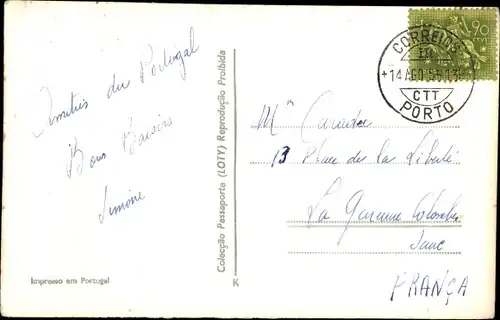 Amitiés du Portugal
Bons Baisers
Simone
Impresso em Portugal
Colecção Passaporte (LOTY) Reprodução Proibida
K
90
CORREIOS
CTT
PORTO
13 Place de la Liberté
La Garenne Colombes
FRANÇA